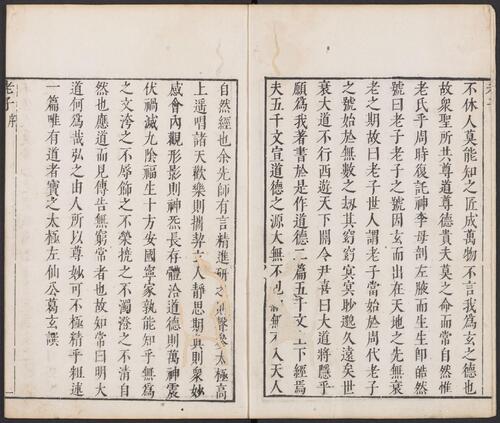 老子
不休人莫能知之匠成萬物不言我爲玄之德也
故衆聖所共尊道尊德貴夫莫之命而常自然惟
老氏乎周時復託神李母剖左腋而生生卽皓然
號曰老子老子之號因玄而出在天地之先無衰
老之期故曰老子世人謂老子當始於周代老子
之號始於無數之刼其窈窈冥冥眇邈久遠矣世
衰大道不行西遊天下關令尹喜曰大道將隱乎
願爲我著書於是作道德二篇五千文上下經焉
夫五千文宣道德之源大無不包無不入天人
自然經也余先師有言精進研之聲參太極高
上遥唱諸天歡樂則攜契人靜思期真則衆妙
感會內觀形影則神炁長存體洽道德則萬神震
伏禍滅九陰福生十方安國寧家孰能知乎無爲
之文涔之不辱飾之不榮撓之不濁澄之不清自
然也應道而見傳告無窮常者也故知常曰明大
道何爲哉弘之由人所以尊妙可不極精乎粗述
一篇唯有道者寶之太極左仙公葛玄譔
老子序 一